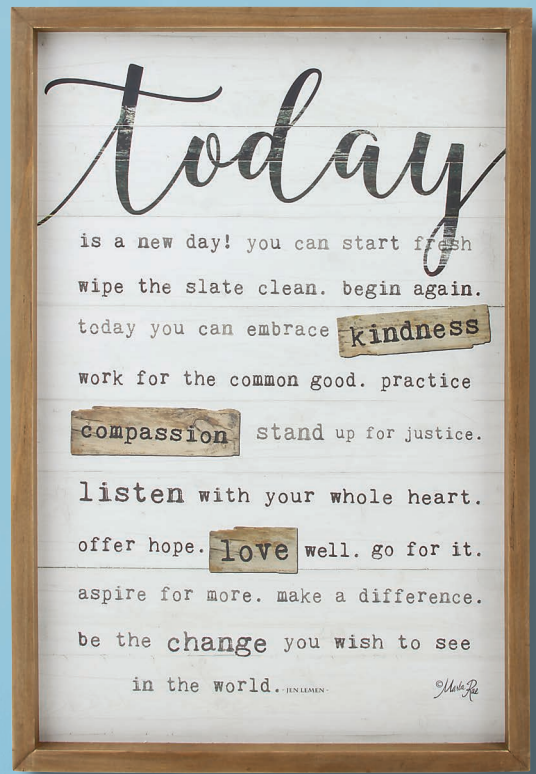 today
is a new day! you can start fresh
wipe the slate clean. begin again.
today you can embrace kindness
work for the common good. practice
compassion stand up for justice.
listen with your whole heart.
offer hope. love well. go for it.
aspire for more. make a difference.
be the change you wish to see
in the world. -JEN LEMEN-
©Marla Rae